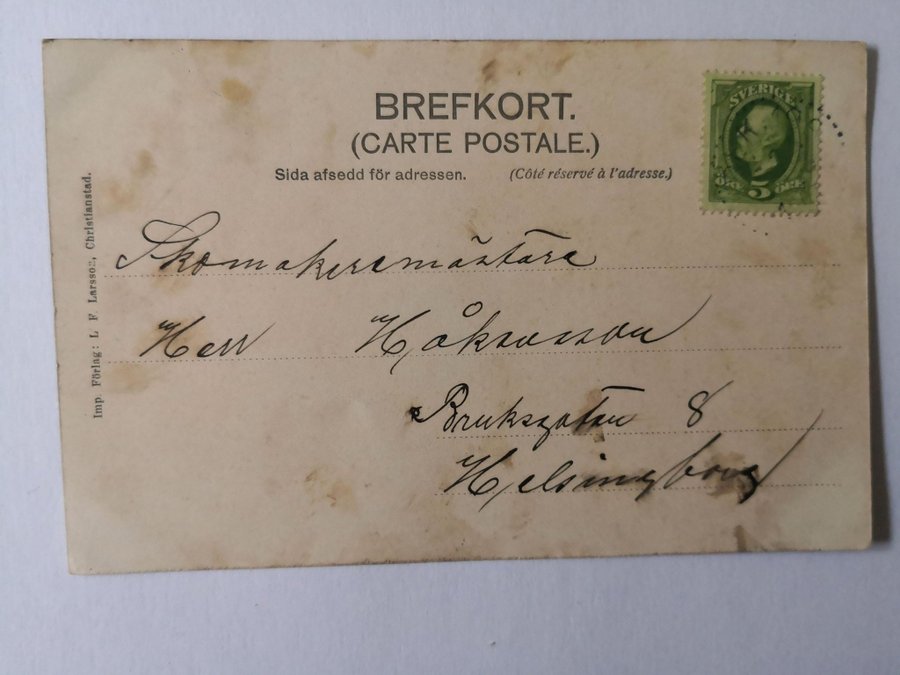 BREFKORT.
(CARTE POSTALE.)
Sida afsedd för adressen. (Côté réservé à l'adresse.)
SVERIGE
ÖRE 5 ÖRE
Imp. Förlag: L. F. Larsson, Christianstad.
Skomakeremästare
Herr Håkansson
Bruksgatan 8
Helsingborg